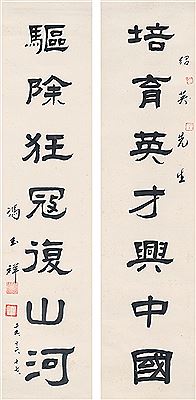 紹英先生
培育英才興中國
驅除狂寇復山河
馮玉祥